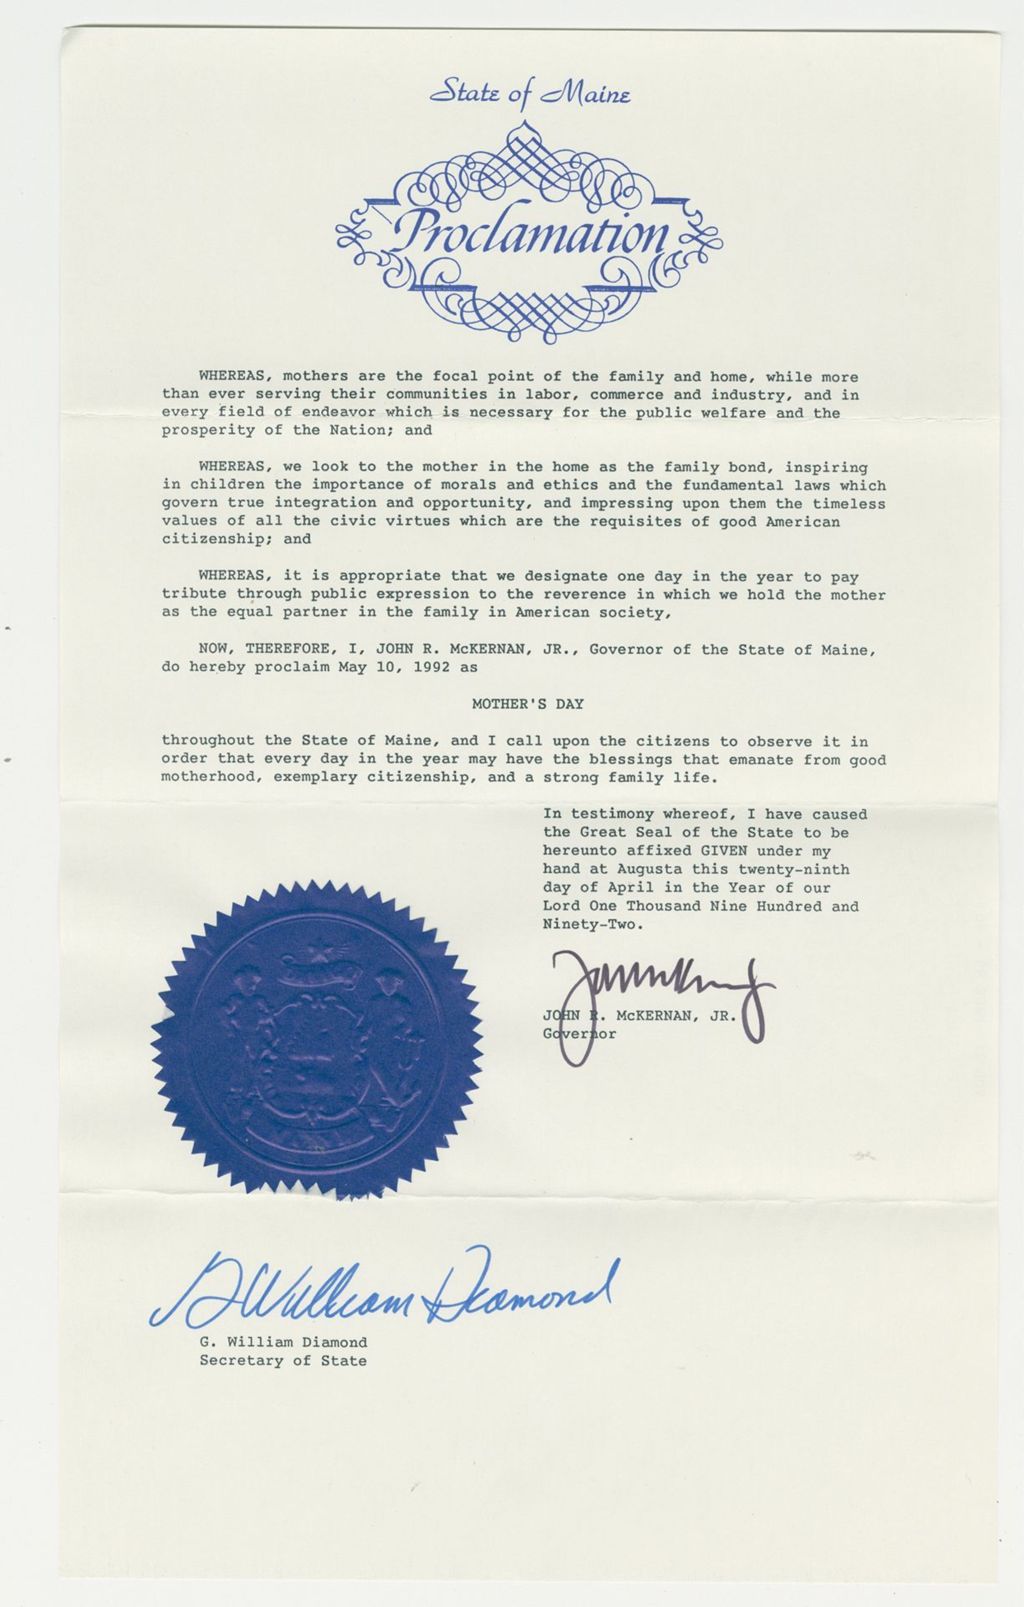 State of Maine
Proclamation
WHEREAS, mothers are the focal point of the family and home, while more
than ever serving their communities in labor, commerce and industry, and in
every field of endeavor which is necessary for the public welfare and the
prosperity of the Nation; and
WHEREAS, we look to the mother in the home as the family bond, inspiring
in children the importance of morals and ethics and the fundamental laws which
govern true integration and opportunity, and impressing upon them the timeless
values of all the civic virtues which are the requisites of good American
citizenship; and
WHEREAS, it is appropriate that we designate one day in the year to pay
tribute through public expression to the reverence in which we hold the mother
as the equal partner in the family in American society,
NOW, THEREFORE, I, JOHN R. McKERNAN, JR., Governor of the State of Maine,
do hereby proclaim May 10, 1992 as
MOTHER'S DAY
throughout the State of Maine, and I call upon the citizens to observe it in
order that every day in the year may have the blessings that emanate from good
motherhood, exemplary citizenship, and a strong family life.
In testimony whereof, I have caused
the Great Seal of the State to be
hereunto affixed GIVEN under my
hand at Augusta this twenty-ninth
day of April in the Year of our
Lord One Thousand Nine Hundred and
Ninety-Two.
JOHN R. McKERNAN, JR.
Governor
G William Diamond
G. William Diamond
Secretary of State